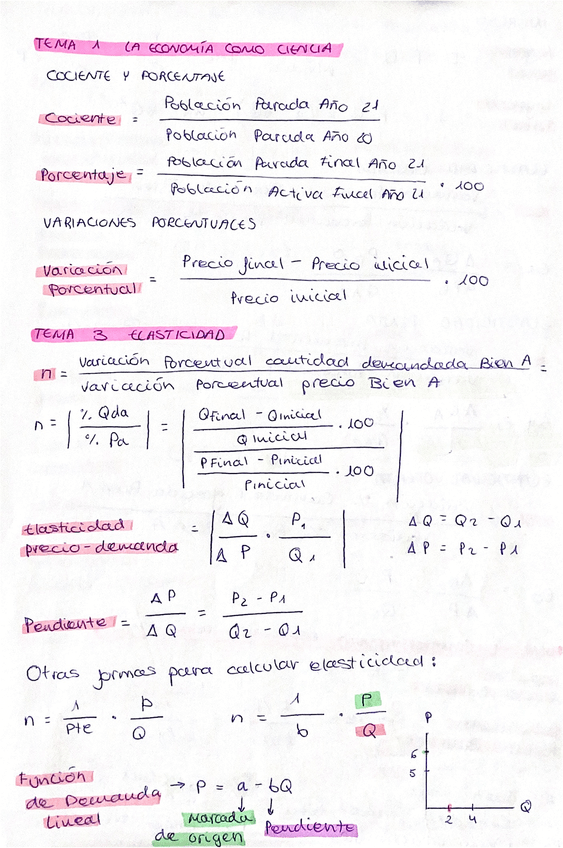 TEMA 1 LA ECONOMÍA COMO CIENCIA
COCIENTE Y PORCENTAJE
Cociente = Población Parada Año 21 / Población Parada Año 20
Porcentaje = Población Parada Final Año 21 / Población Activa Final Año 21 · 100
VARIACIONES PORCENTUALES
Variación Porcentual = Precio final - Precio inicial / Precio inicial · 100
TEMA 3 ELASTICIDAD
n = Variación Porcentual cantidad demandada Bien A / Variación Porcentual precio Bien A =
n = | % Qda / % Pa | = | QFinal - QInicial / QInicial · 100 / PFinal - PInicial / PInicial · 100 |
Elasticidad precio-demanda = | ΔQ / ΔP · P1 / Q1 |
ΔQ = Q2 - Q1
ΔP = P2 - P1
Pendiente = ΔP / ΔQ = P2 - P1 / Q2 - Q1
Otras formas para calcular elasticidad:
n = 1 / Pte · P / Q
n = 1 / b · P / Q
P
6
5
2 4 Q
Función de Demanda Lineal → P = a - bQ
↓ ↓
Marcada de origen
Pendiente